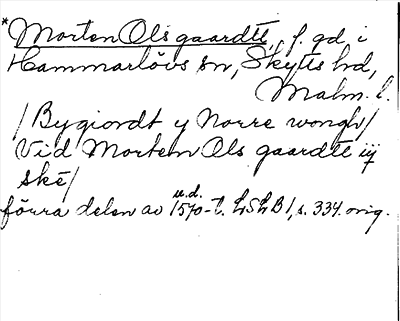 *Morten Ols gaardtt, f. gd. i
Hammarlövs sn, Skytts hd,
Malm. l.
/Bygiordt y Norre wongh/
Vid Morten Ols gaardtt iiij
ske/
u.d.
förra delen av 1570-t. LSLB 1, s. 334. orig.